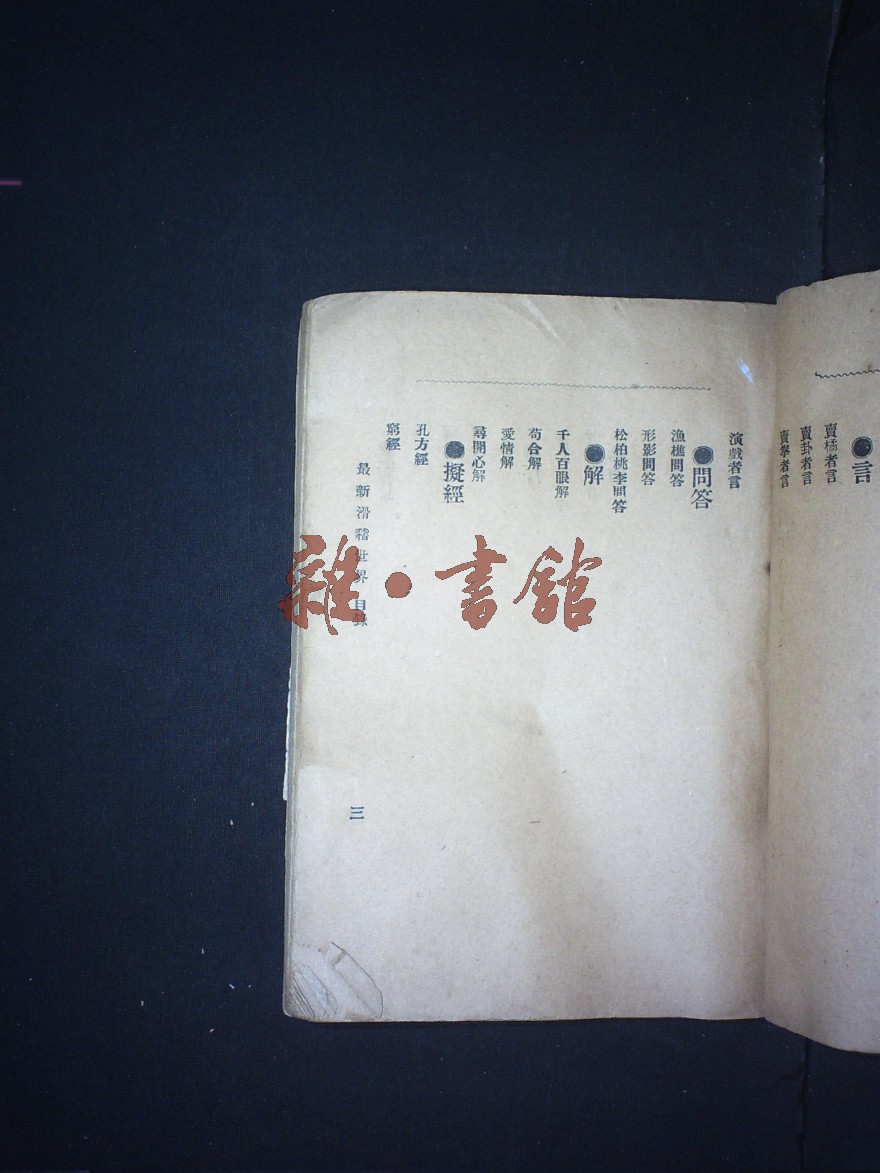 ●言
賣橘者言
賣卦者言
賣學者言
演戲者言
●問答
漁樵問答
形影問答
松柏桃李問答
●解
千人百眼解
苟合解
愛情解
尋開心解
●擬經
孔方經
窮經
最新滑稽世界 目錄
三
雜·書館